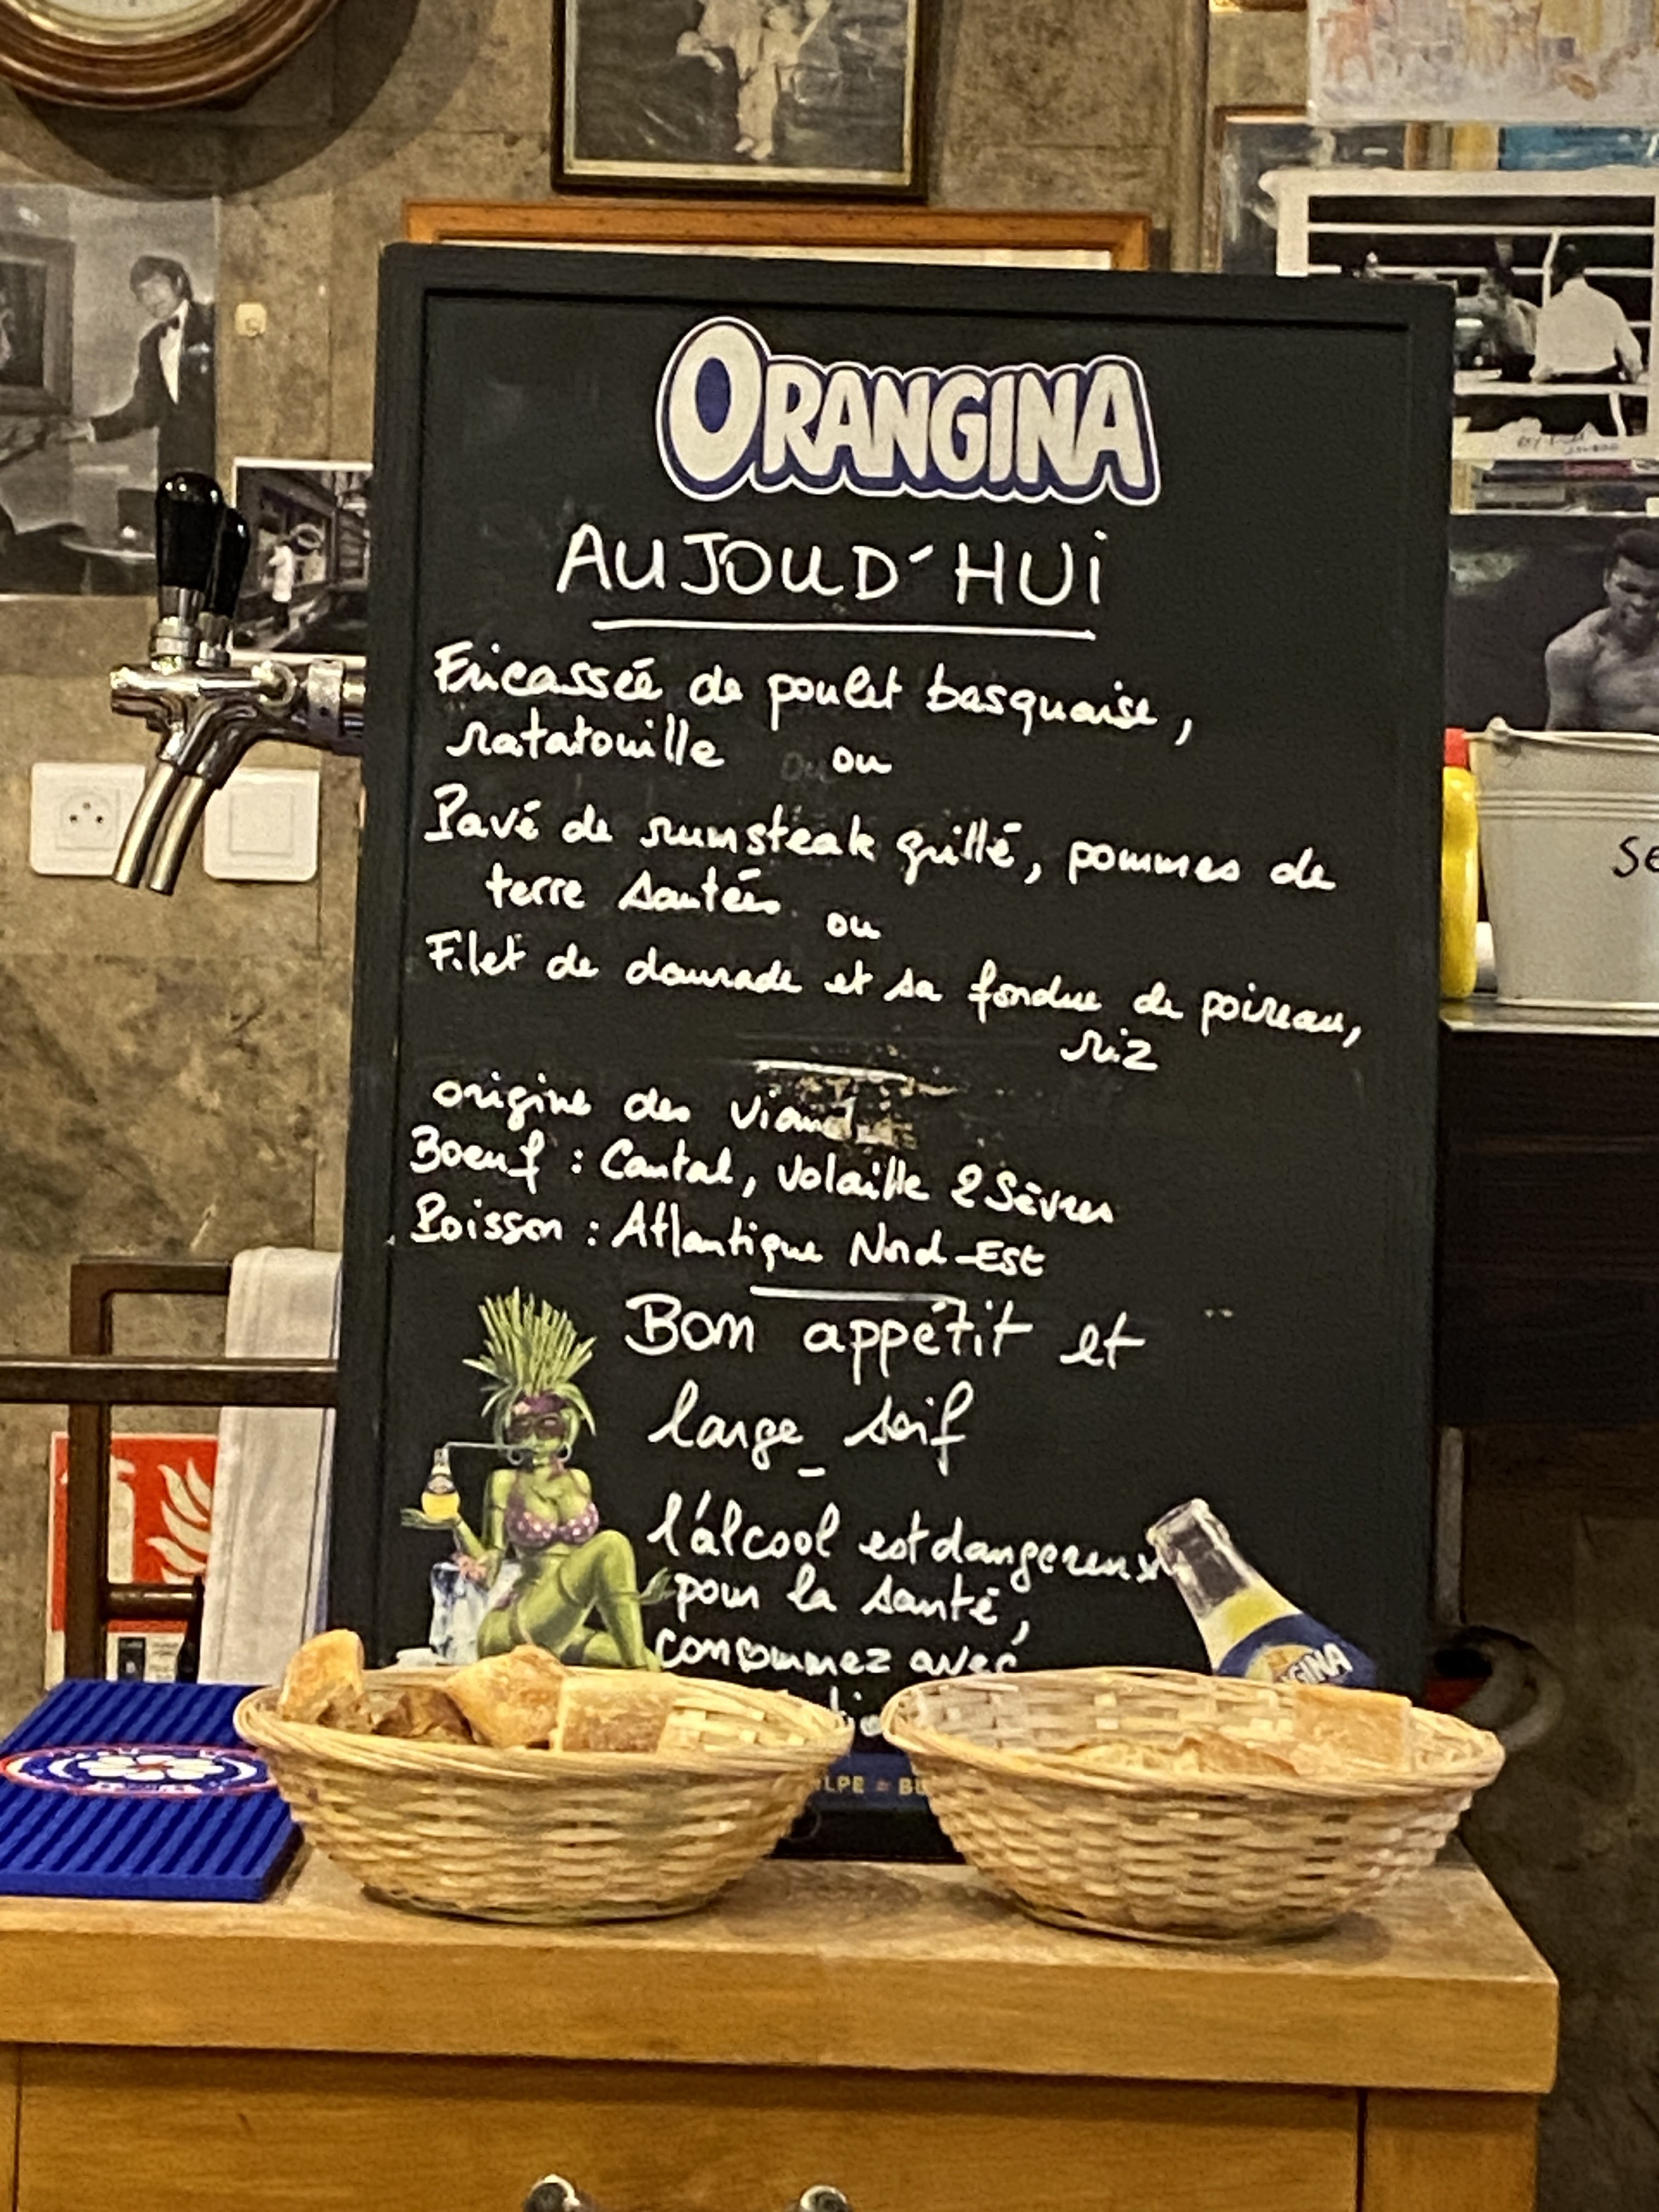 ORANGINA
AUJOUD'HUI
Fricassée de poulet basquaise,
ratatouille ou
Pavé de rumsteak grillé, pommes de
terre sautées ou
Filet de daurade et sa fondue de poireau,
riz
origine des viandes
Boeuf : Cantal, Volaille 2 Sèvres
Poisson : Atlantique Nord-Est
Bon appétit et
large soif
l'alcool est dangereux
pour la santé,
consommez avec
GINA
SE